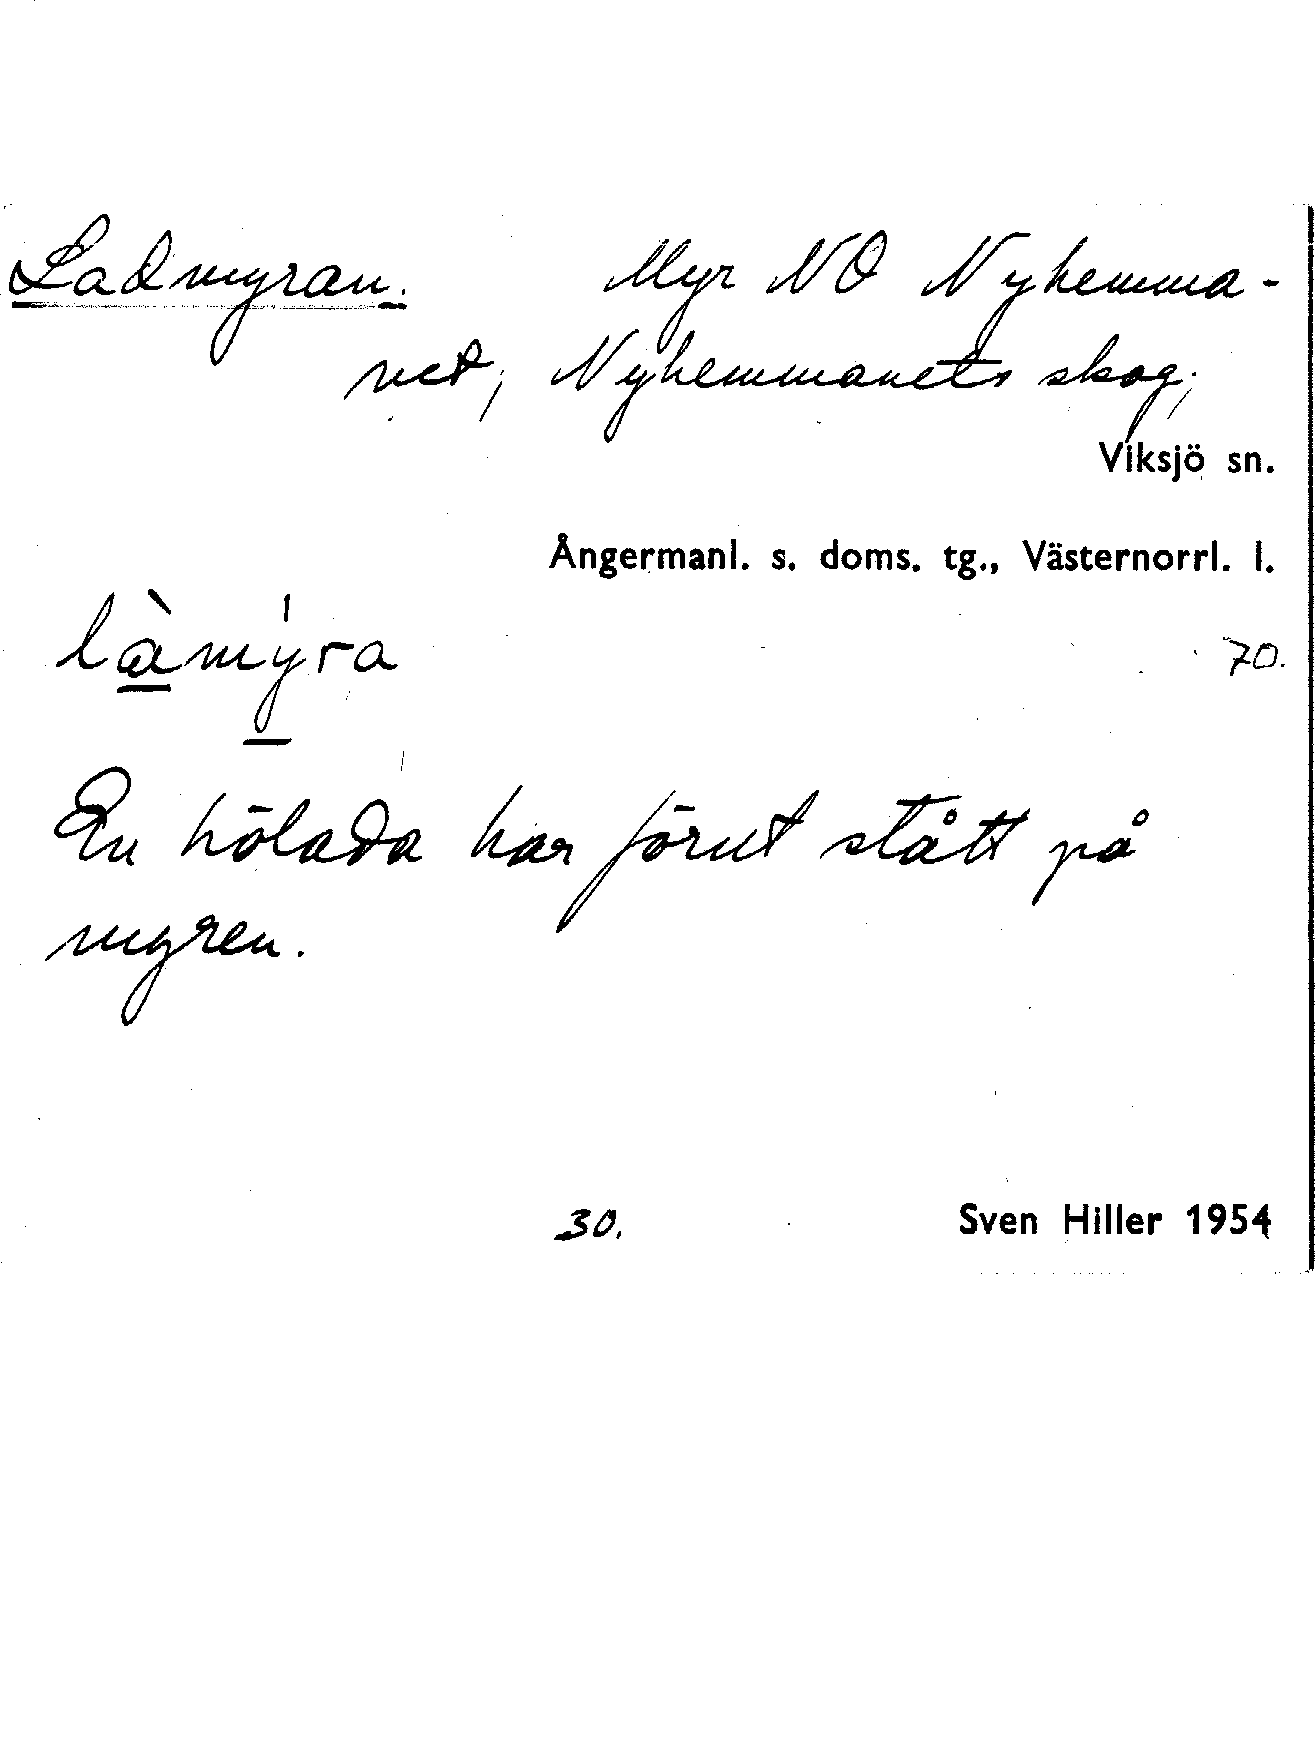 Ladmyran. Myr NO Nyhemma-
net; Nyhemmanets skog;
Viksjö sn.
Ångermanl. s. doms. tg., Västernorrl. l.
làmýra
70.
En hölada har förut stått på
myren.
30. Sven Hiller 1954